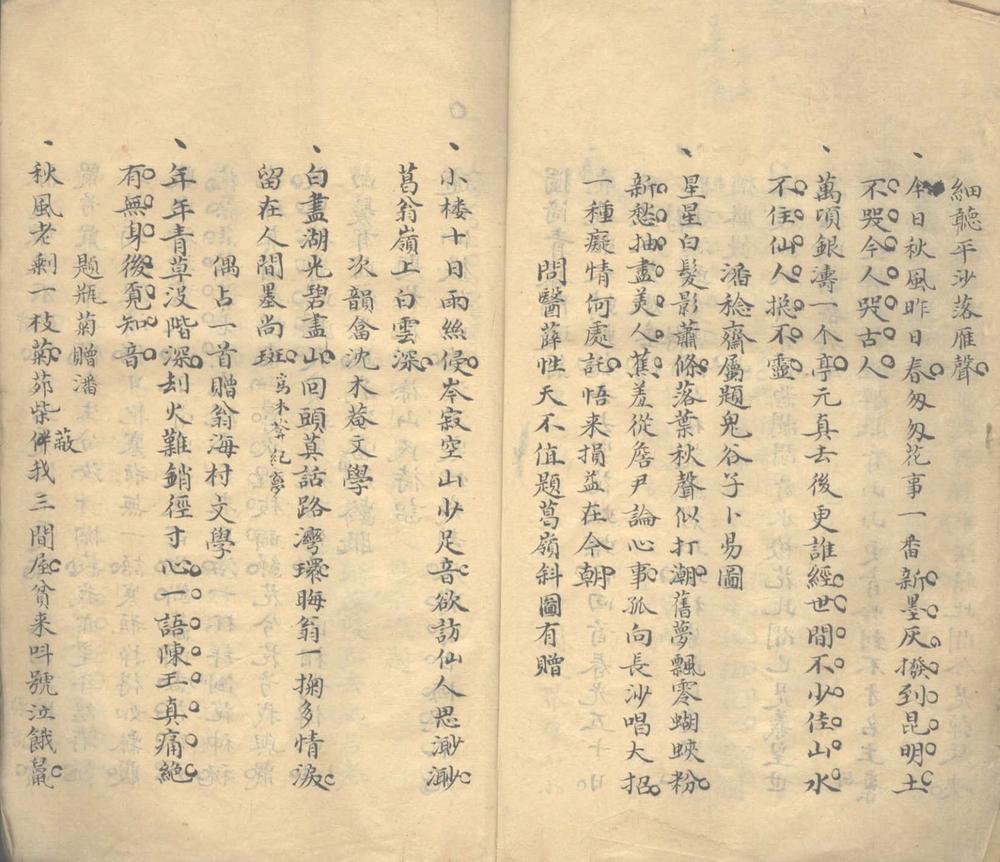 細聽平沙落雁聲
今日秋風昨日春匆匆花事一番新墨灰撥到昆明土
不哭今人哭古人
萬頃銀濤一个亭元真去後更誰經世間不少佳山水
不住仙人揔不靈
潘稔齋屬題鬼谷子卜易圖
星星白髮影蕭條落葉秋聲似打潮舊夢飄零蝴蝶粉
新愁抽盡美人蕉羞從詹尹論心事孤向長沙唱大招
一種癡情何處託悟来損益在今朝
問醫薛性天不值題葛嶺斜圖有贈
小楼十日雨絲侵岑寂空山少足音欲訪仙人思渺渺
葛翁嶺上白雲深
次韻畣沈木菴文學
白盡湖光碧盡山回頭莫話路灣環晦翁一掬多情淚
留在人間墨尚斑寫木菴紀夢
偶占一首贈翁海村文學
年年青草没階深刦火難銷徑寸心一語陳王真痛絶
有無身後覔知音
題瓶菊贈潘
秋風老剩一枝菊茆柴伴蔽我三間屋貧来呌號泣餓鼯